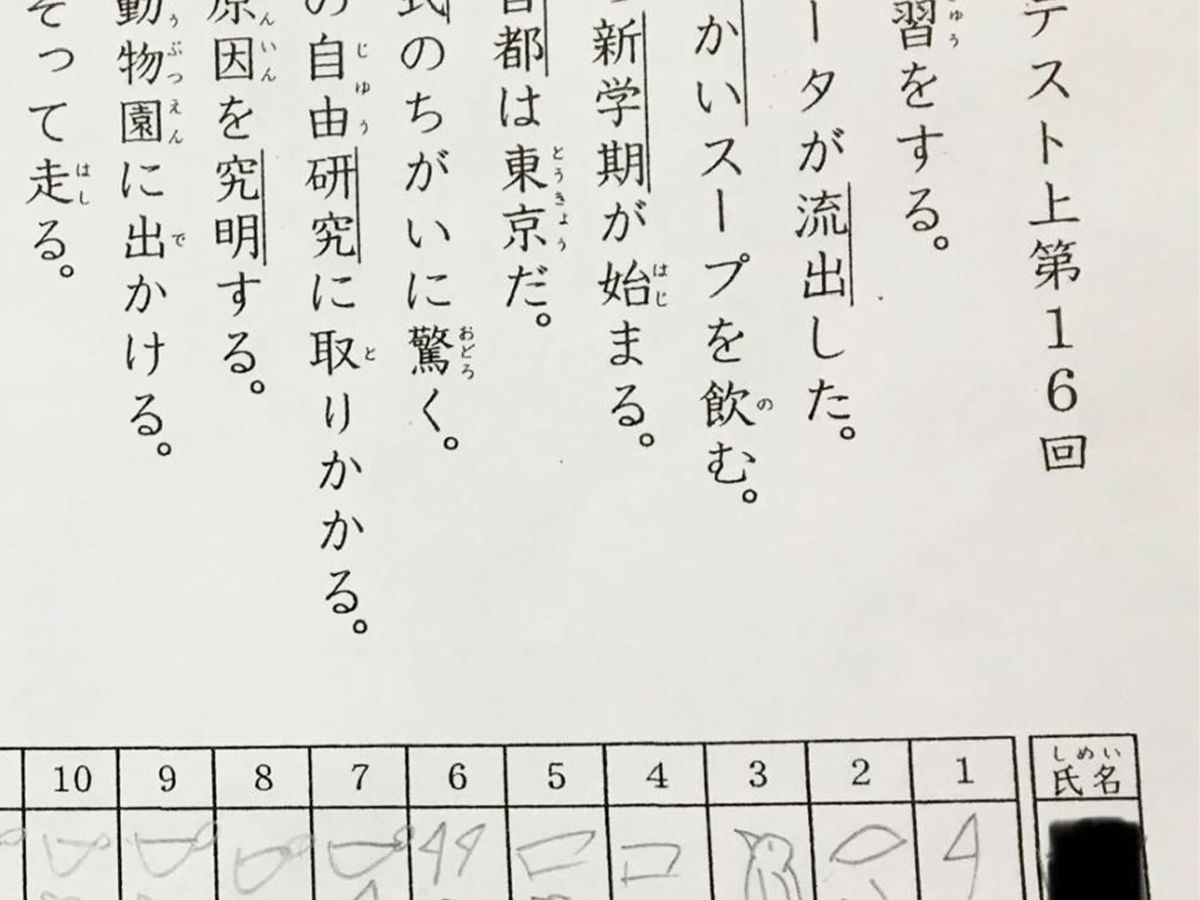 テスト上第16回
習をする。
ータが流出した。
かいスープを飲む。
新学期が始まる。
都は東京だ。
式のちがいに驚く。
の自由研究に取りかかる。
原因を究明する。
動物園に出かける。
そって走る。
しめい
氏名
1
2
3
4
5
6
7
8
9
10